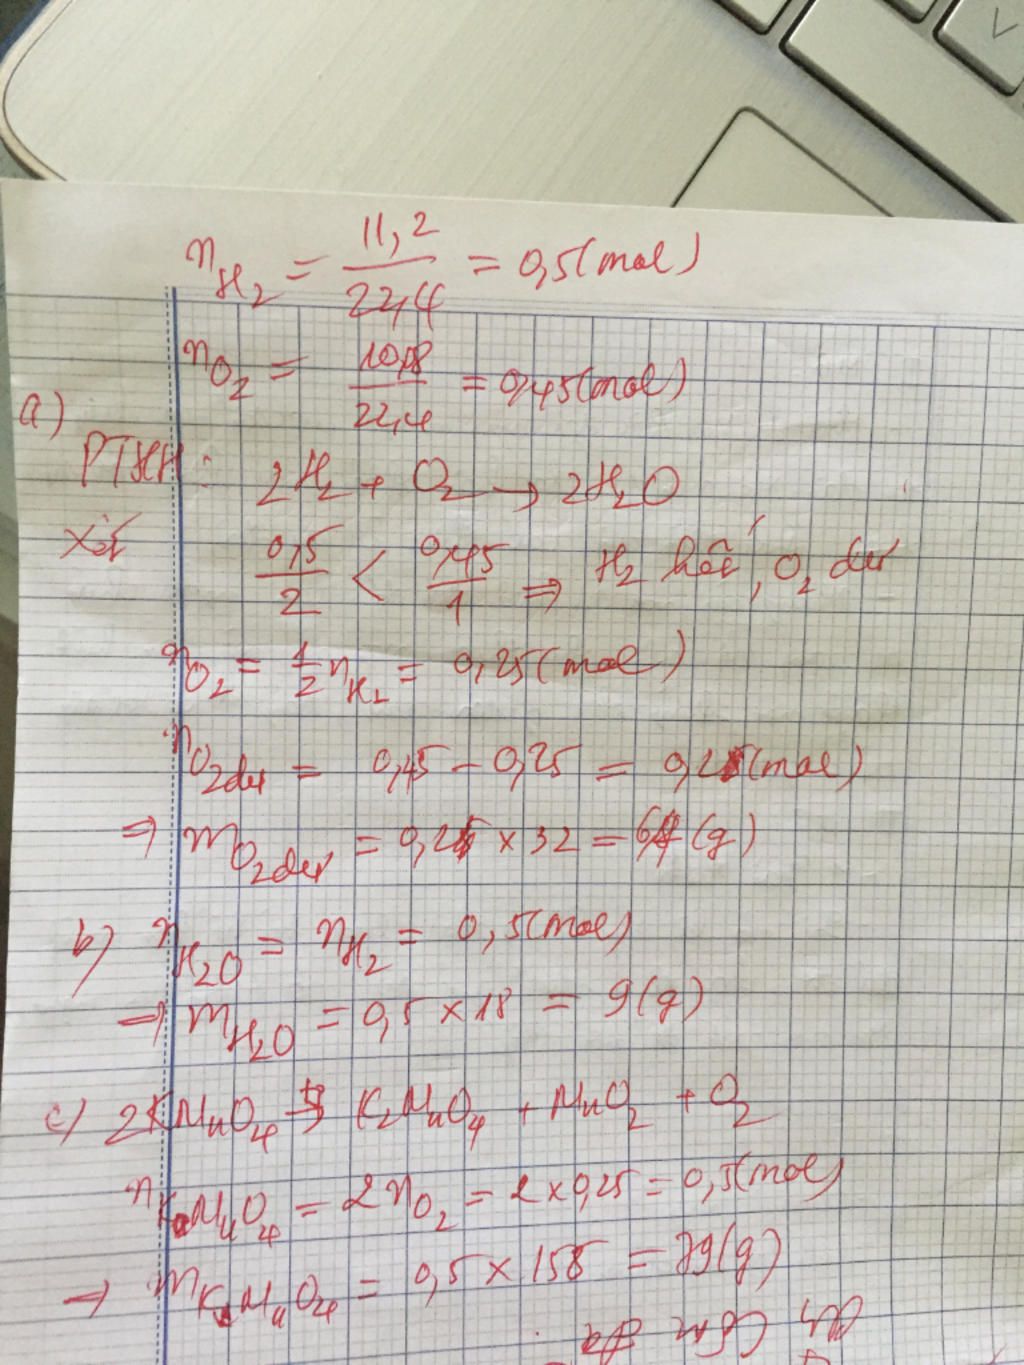 n_H₂ = 11,2/22,4 = 0,5 (mol)
n_O₂ = 10,8/22,4 = 0,45 (mol)
a)
PTHH: 2H₂ + O₂ → 2H₂O
Xét 0,5/2 < 0,45/1 ⇒ H₂ hết, O₂ dư
n_O₂ = 1/2 n_H₂ = 0,25 (mol)
n_O₂ dư = 0,45 - 0,25 = 0,2 (mol)
⇒ m_O₂ dư = 0,2 × 32 = 6,4 (g)
b) n_H₂O = n_H₂ = 0,5 (mol)
→ m_H₂O = 0,5 × 18 = 9 (g)
c) 2KMnO₄ → K₂MnO₄ + MnO₂ + O₂
n_KMnO₄ = 2n_O₂ = 2 × 0,25 = 0,5 (mol)
→ m_KMnO₄ = 0,5 × 158 = 79 (g)